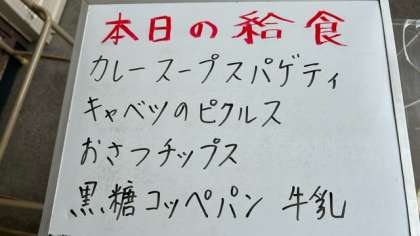 本日の給食
カレースープスパゲティ
キャベツのピクルス
おさつチップス
黒糖コッペパン 牛乳